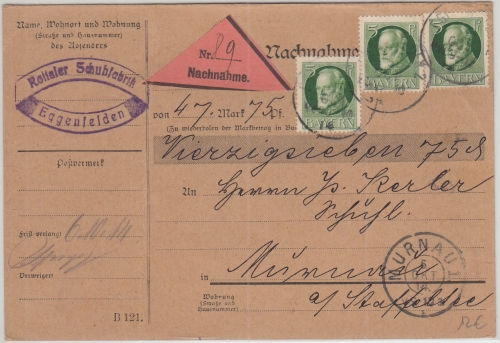 Name, Wohnort und Wohnung
(Straße und Hausnummer)
des Absenders
Rottaler Schuhfabrik
Eggenfelden
Postvermerk
Frist verlangt
Verweigert
B 121.
Nr. 89
Nachnahme.
Nachnahme
5 5
BAYERN
5 5
BAYERN
5 5
BAYERN
von 47. Mark 75 Pf.
(Zu wiederholen der Markbetrag in
Vierzigsieben 75 ₰
An Herrn Jos. Kerler
Schuhl.
in Murnau
a/ Staffelsee
Wohnung
(Straße und
Hausnummer)
MURNAU
5
OKT
12€